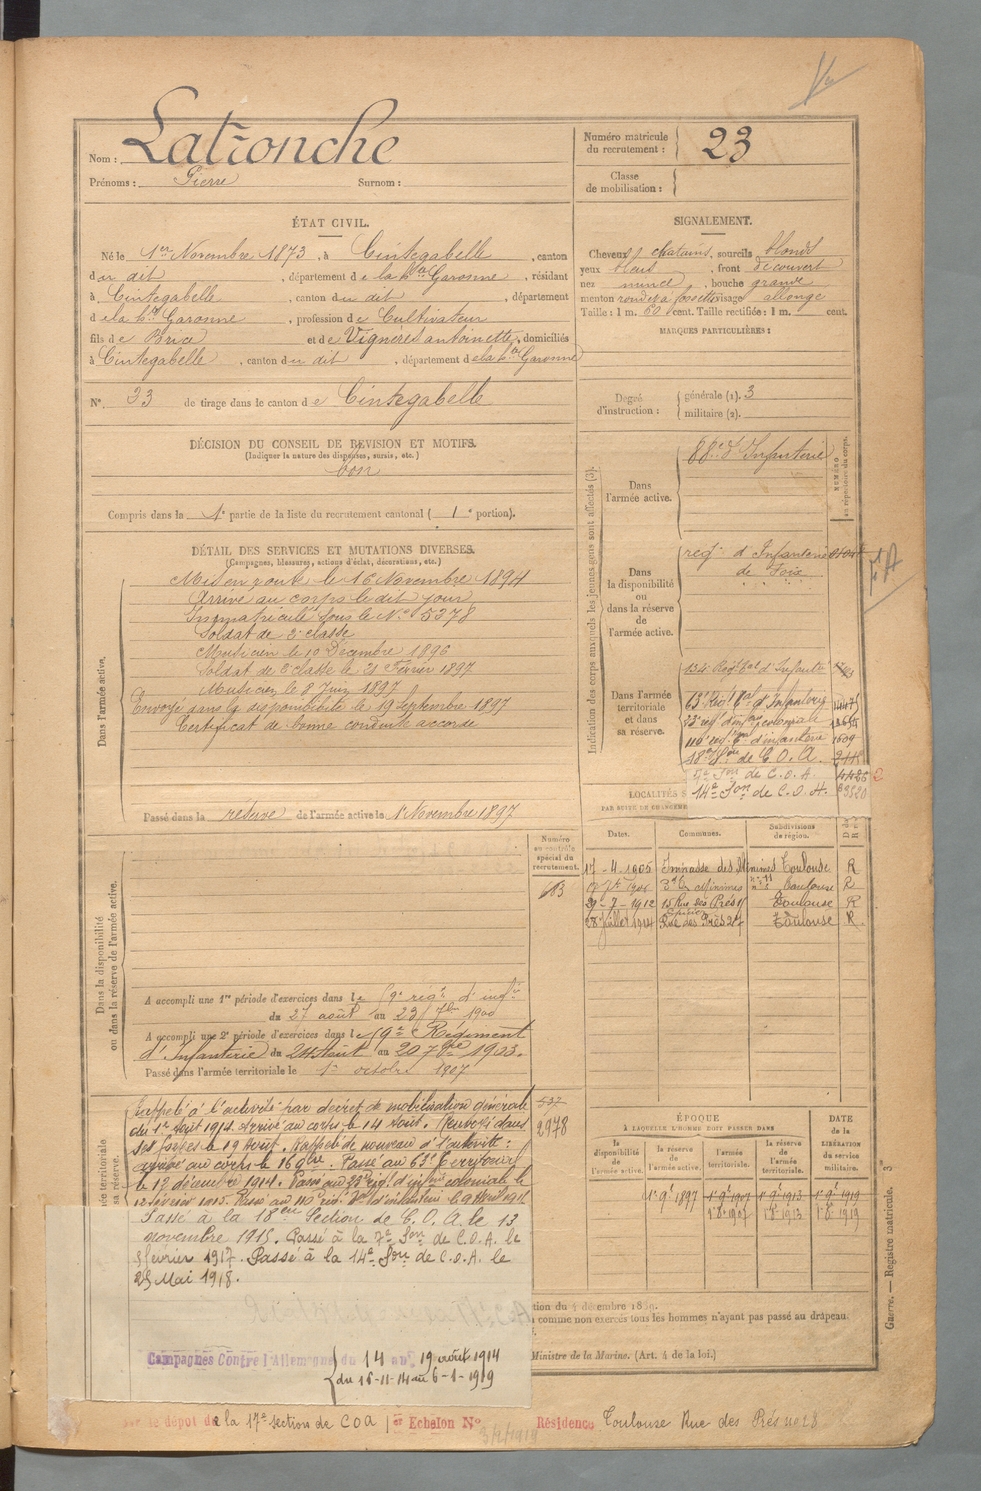 Nom : Latronche
Prénoms : Pierre Surnom :
Numéro matricule du recrutement : 23
Classe de mobilisation :
ÉTAT CIVIL.
Né le 1er Novembre 1873, à Cintegabelle, canton
du dit, département de la hte Garonne, résidant
à Cintegabelle, canton du dit, département
de la hte Garonne, profession de Cultivateur
fils de Brice et de Vignères antoinette, domiciliés
à Cintegabelle, canton du dit, département de la hte Garonne
N° 33 de tirage dans le canton de Cintegabelle
SIGNALEMENT.
Cheveux chatains, sourcils blonds
yeux bleus, front découvert
nez mince, bouche grande
menton rond et à fossette visage allongé
Taille : 1 m. 60 cent. Taille rectifiée : 1 m. cent.
MARQUES PARTICULIÈRES :
Degré d'instruction : générale (1). 3
militaire (2).
DÉCISION DU CONSEIL DE REVISION ET MOTIFS.
(Indiquer la nature des dispenses, sursis, etc.)
bon
Compris dans la 1e partie de la liste du recrutement cantonal ( 1e portion).
DÉTAIL DES SERVICES ET MUTATIONS DIVERSES.
(Campagnes, blessures, actions d'éclat, décorations, etc.)
Dans l'armée active.
Mis en route le 16 Novembre 1894
Arrivé au corps le dit jour
Immatriculé sous le N° 5378
Soldat de 2e classe
Musicien le 10 Décembre 1896
Soldat de 2e classe le 21 Février 1897
Musicien le 8 Juin 1897
Envoyé dans la disponibilité le 19 septembre 1897
Certificat de bonne conduite accordé
Passé dans la réserve de l'armée active le 1r Novembre 1897
Indication des corps auxquels les jeunes gens sont affectés (3).
NUMÉRO au répertoire du corps.
Dans l'armée active.
88e d'Infanterie
Dans la disponibilité ou dans la réserve de l'armée active.
reg't d'Infanterie
de Foix
Dans l'armée territoriale et dans sa réserve.
134e Regt tal d'Infanterie
63e Regt tal d'Infanterie
23e regt d'infie coloniale
110e regt tal d'infanterie 1609
18e Son de C.O.A.
7e Son de C.O.A. 4486
14e Son de C.O.A. 63520
LOCALITÉS S
PAR SUITE DE CHANGEME
Dates. Communes. Subdivisions de région.
17-4-1905 Impasse des Minimes Toulouse R
Toulouse R
29-8-1912 15 Rue des Prés Toulouse R
28 Juillet 1914 Rue des Prés 28 Toulouse R
Dans la disponibilité ou dans la réserve de l'armée active.
Numéro au contrôle spécial du recrutement.
683
A accompli une 1re période d'exercices dans le 59e régt d'infie
du 27 août au 23 7bre 1900
A accompli une 2e période d'exercices dans le 59e Régiment
d'Infanterie du 24 Août au 20 7bre 1903.
Passé dans l'armée territoriale le 1r octobre 1907
Rappelé à l'activité par décret de mobilisation générale
du 1er Août 1914. Arrivé au corps le 14 Août. Renvoyé dans
ses foyers le 19 Août. Rappelé de nouveau à l'activité :
arrivé au corps le 16 9bre. Passé au 63e Territorial
le 12 décembre 1914. Passé au 23e régt d'infie coloniale le
12 février 1915. Passé au 110e régt tal d'infanterie le 9 Avril 1915
2978
Passé à la 18eme Section de C.O.A. le 13
novembre 1915. Passé à la 7e Son de C.O.A. le
5 février 1917. Passé à la 14e Son de C.O.A. le
25 Mai 1918.
Campagnes Contre l'Allemagne du 14 au 19 août 1914
du 16-11-14 au 6-1-1919
ÉPOQUE
À LAQUELLE L'HOMME DOIT PASSER DANS
DATE de la LIBÉRATION du service militaire.
la disponibilité de l'armée active. la réserve de l'armée active. l'armée territoriale. la réserve de l'armée territoriale.
1r 9e 1897 1r 9e 1907 1r 9e 1913 1r 9e 1919
1r 8e 1907 1r 8e 1913 1r 8e 1919
tion du 4 décembre 1889.
comme non exercés tous les hommes n'ayant pas passé au drapeau.
Ministre de la Marine. (Art. 4 de la loi.)
Guerre. — Registre matricule. 3e
le dépôt de la 17e section de COA 1er Echelon N° Résidence Toulouse Rue des Prés no 28